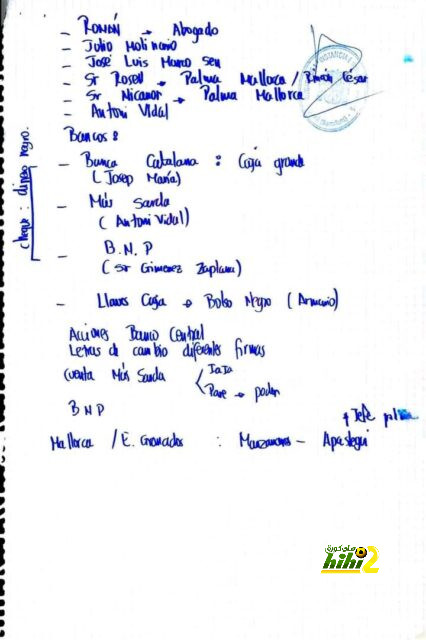 - ROMÁN → Abogado
- Julio Molinario
- José Luis Marco Seu
- Sr Rosell → Palma Mallorca / Román César
- Sr Nicanor → Palma Mallorca
- Antoni Vidal
Bancos:
- Banca Catalana : Caja grande
(Josep María)
- Más Sarda
(Antoni Vidal)
- B.N.P
(Sr Gimenez Zaplana)
- Llaves Caja → Bolso Negro (Armario)
cheque: dinero negro.
Acciones Banco Central
Letras de cambio diferentes firmas
Cuenta Más Sarda
Pare → poder
BNP
+ Jefe
Mallorca / E. Granados : Manzanares - Apastegui
هاي كورة
hihi2